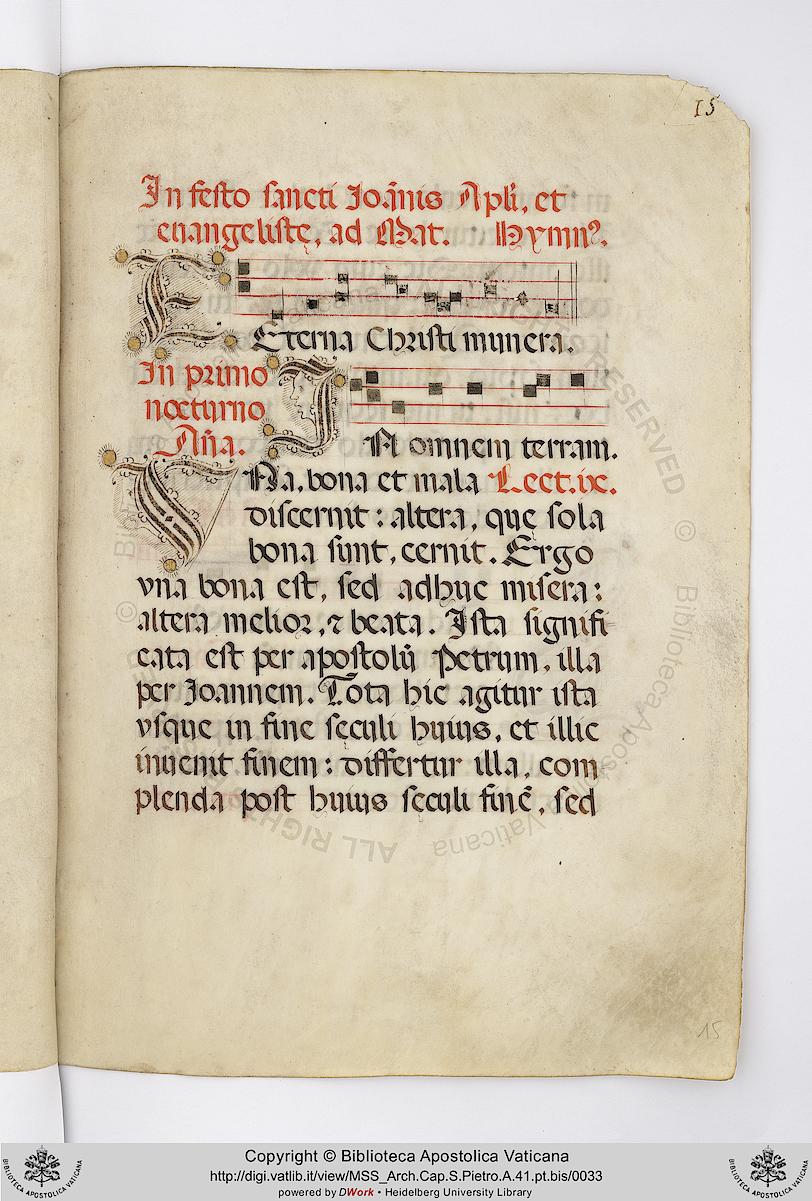 15
In festo sancti Ioãnis Apłi, et
euangelistę, ad Mat. Hymnꝰ.
Eterna Christi munera.
In primo
nocturno
Añа.
IN omnem terram.
VNa, bona et mala Lect. ix.
discernit : altera, quę sola
bona sunt, cernit. Ergo
vna bona est, sed adhuc misera :
altera melior, ⁊ beata. Ista signifi
cata est per apostolũ Petrum, illa
per Ioannem. Tota hic agitur ista
vsque in fine sęculi huius, et illic
inuenit finem : differtur illa, com
plenda post huius sęculi finẽ, sed
15
ALL RIGHTS RESERVED © Biblioteca Apostolica Vaticana ©
Copyright © Biblioteca Apostolica Vaticana
http://digi.vatlib.it/view/MSS_Arch.Cap.S.Pietro.A.41.pt.bis/0033
powered by DWork • Heidelberg University Library
BIBLIOTECA APOSTOLICA VATICANA
BIBLIOTECA APOSTOLICA VATICANA